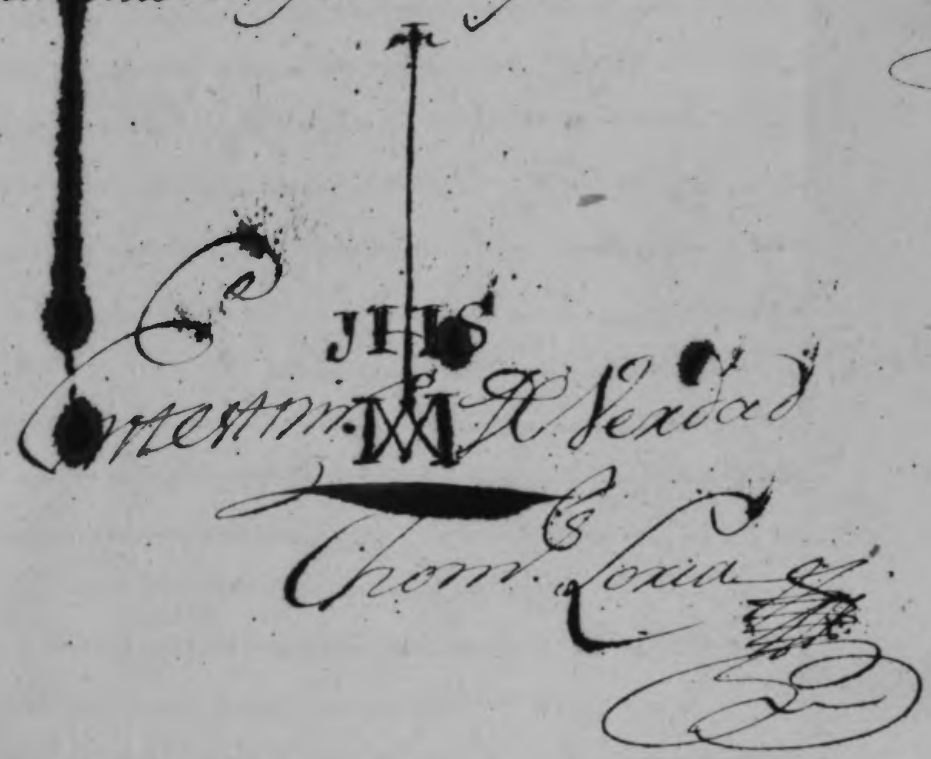 JHS
En testim.o M De Verdad
Thom.s Loria